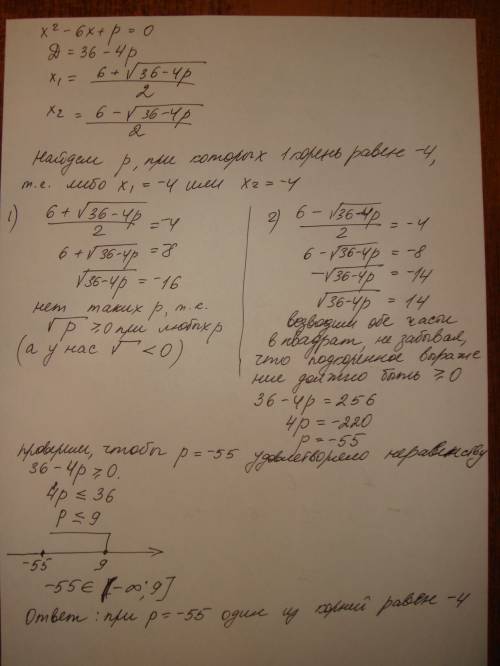 x² - 6x + p = 0
D = 36 - 4p
x₁ = (6 + √(36 - 4p))/2
x₂ = (6 - √(36 - 4p))/2
Найдем p, при которых 1 корень равен -4,
т.е. либо x₁ = -4 или x₂ = -4
1) (6 + √(36 - 4p))/2 = -4
6 + √(36 - 4p) = -8
√(36 - 4p) = -16
нет таких p, т.к.
√p ≥ 0 при любых p
(а у нас √ < 0)
2) (6 - √(36 - 4p))/2 = -4
6 - √(36 - 4p) = -8
-√(36 - 4p) = -14
√(36 - 4p) = 14
возводим обе части
в квадрат, не забывая,
что подкоренное выраже
ние должно быть ≥ 0
36 - 4p = 256
4p = -220
p = -55
проверим, чтобы p = -55 удовлетворяло неравенству
36 - 4p ≥ 0.
4p ≤ 36
p ≤ 9
-55 9
-55 ∈ [-∞; 9]
Ответ: при p = -55 один из корней равен -4